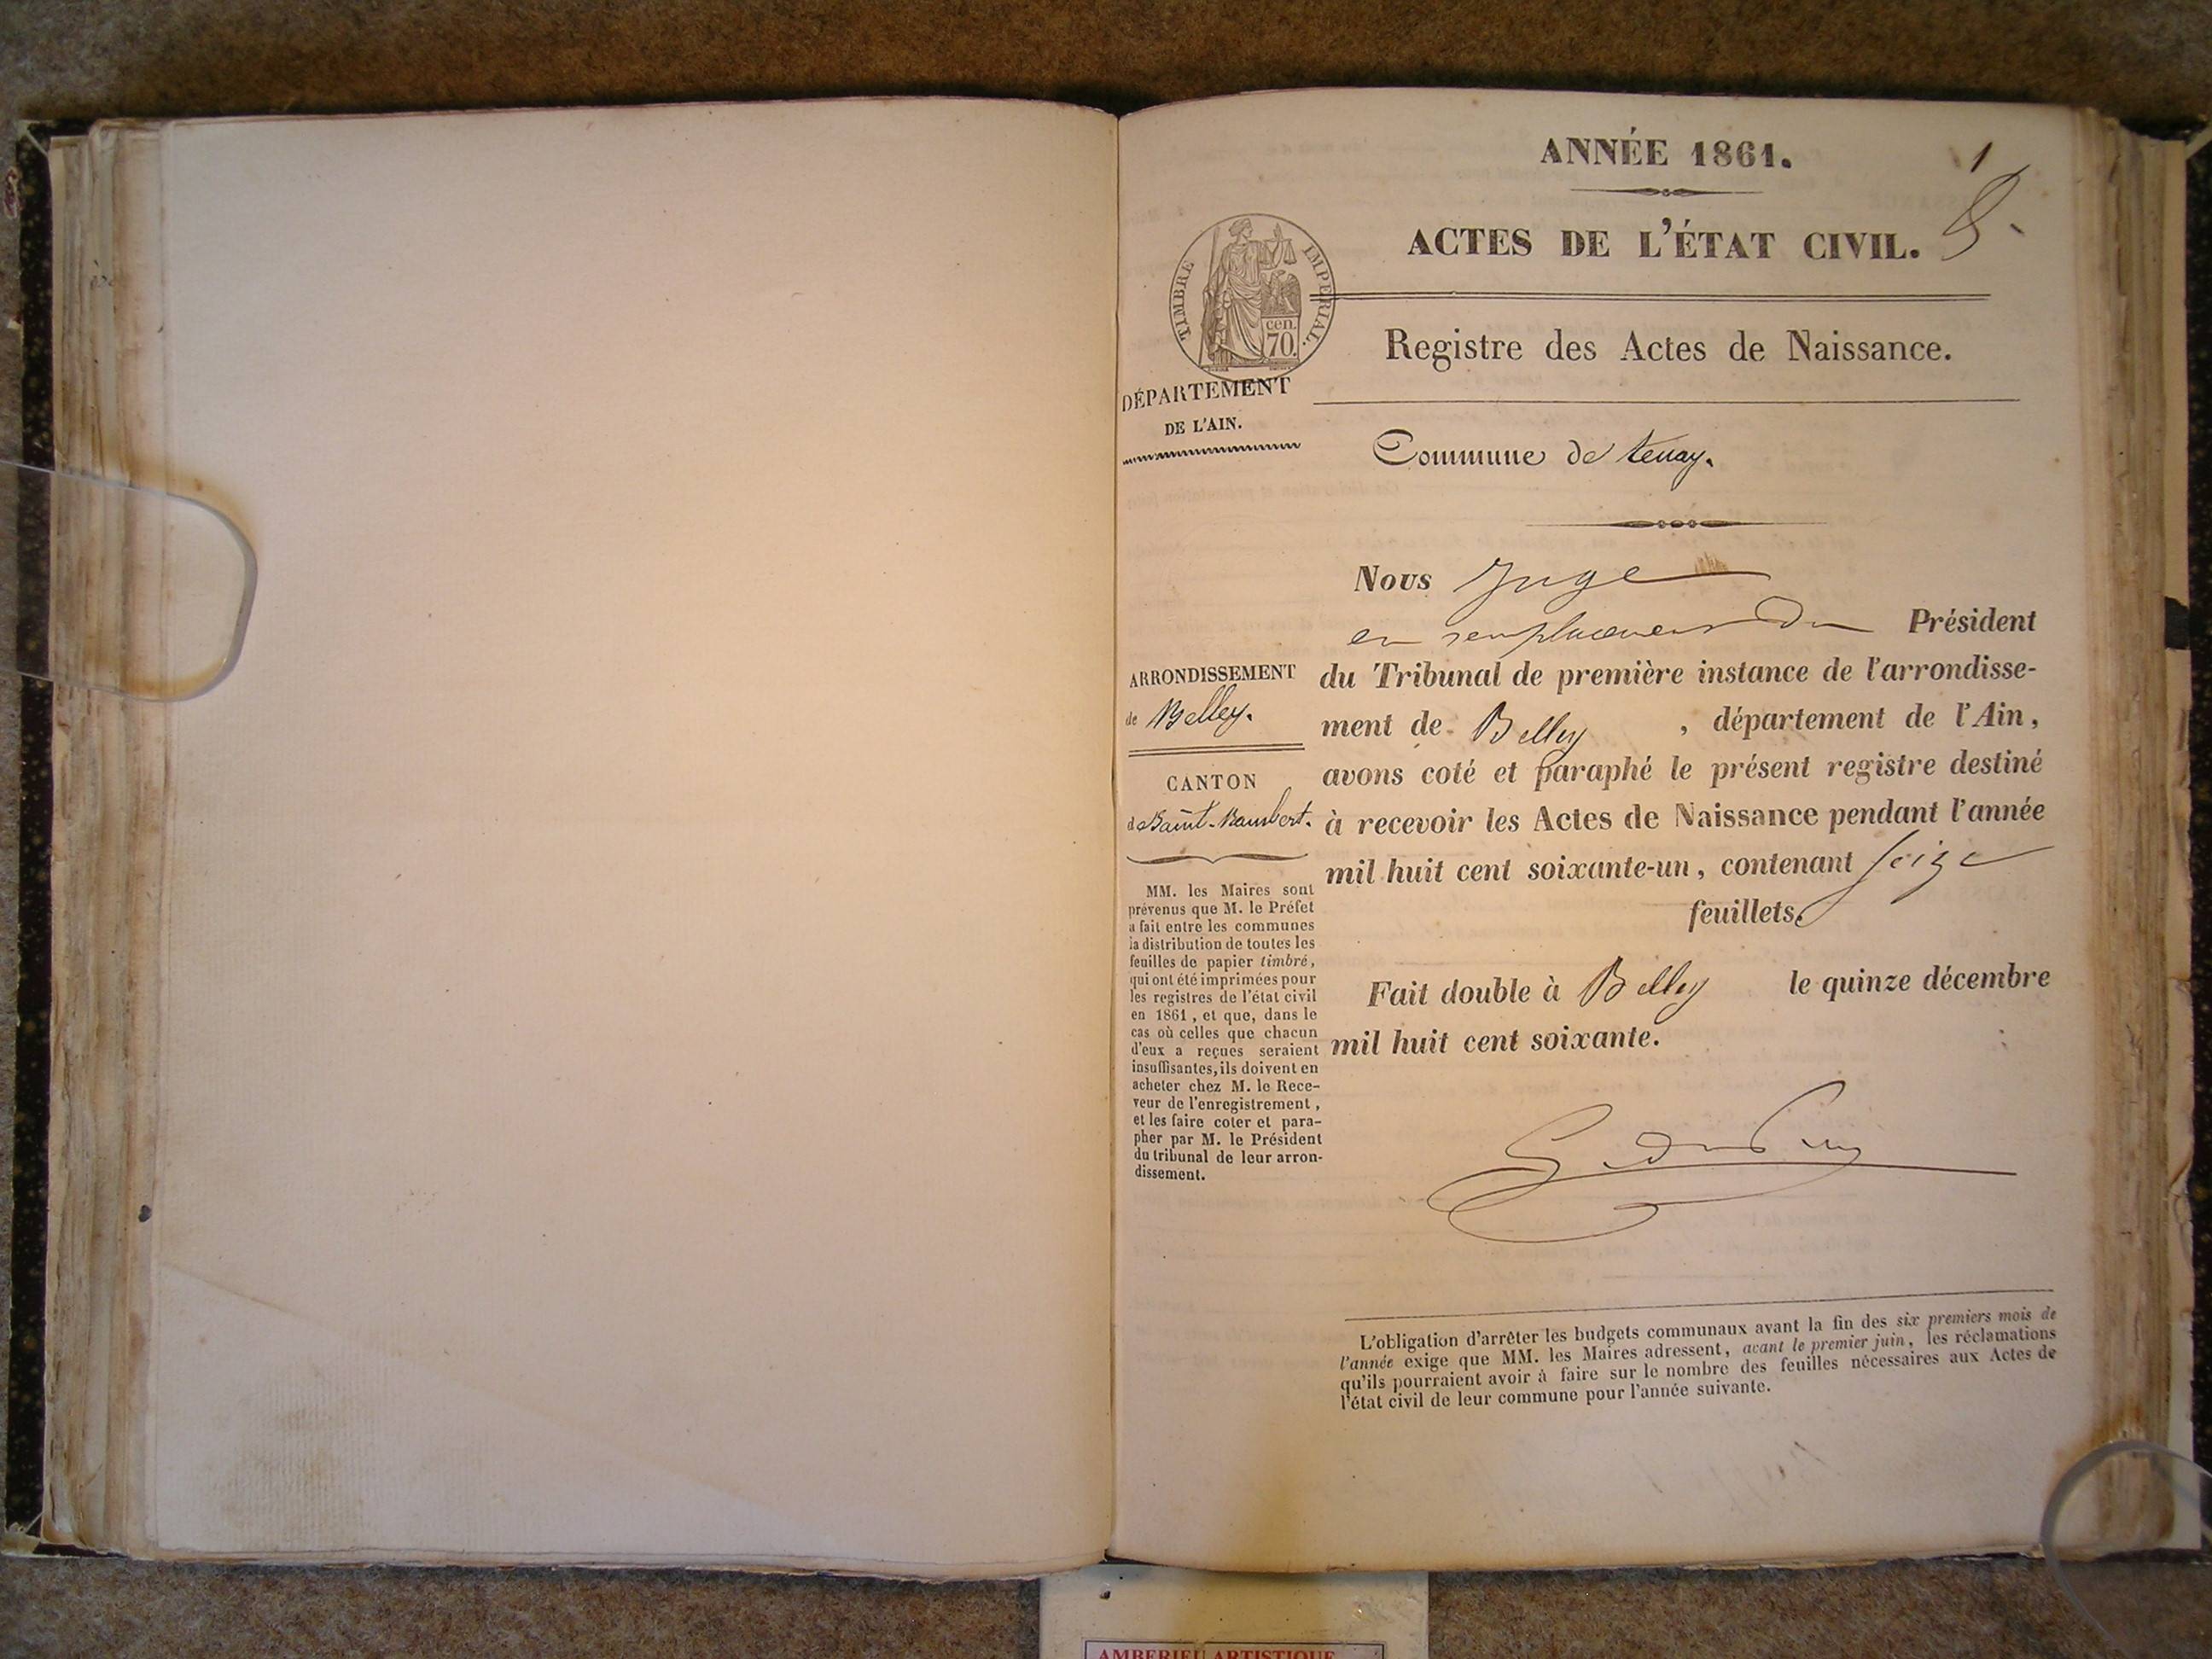 ANNÉE 1861.
1
ACTES DE L'ÉTAT CIVIL.
TIMBRE IMPERIAL.
cen.
70.
Registre des Actes de Naissance.
DÉPARTEMENT
DE L'AIN.
Commune de tenay.
Nous Juge
en remplacement du Président
ARRONDISSEMENT
de Belley.
du Tribunal de première instance de l'arrondisse-
ment de Belley, département de l'Ain,
avons coté et paraphé le présent registre destiné
à recevoir les Actes de Naissance pendant l'année
mil huit cent soixante-un, contenant seize
feuillets.
CANTON
de Saint-Rambert.
MM. les Maires sont
prévenus que M. le Préfet
a fait entre les communes
la distribution de toutes les
feuilles de papier timbré,
qui ont été imprimées pour
les registres de l'état civil
en 1861, et que, dans le
cas où celles que chacun
d'eux a reçues seraient
insuffisantes, ils doivent en
acheter chez M. le Rece-
veur de l'enregistrement,
et les faire coter et para-
pher par M. le Président
du tribunal de leur arron-
dissement.
Fait double à Belley le quinze décembre
mil huit cent soixante.
L'obligation d'arrêter les budgets communaux avant la fin des six premiers mois de
l'année exige que MM. les Maires adressent, avant le premier juin, les réclamations
qu'ils pourraient avoir à faire sur le nombre des feuilles nécessaires aux Actes de
l'état civil de leur commune pour l'année suivante.
AMBERIEU ARTISTIQUE